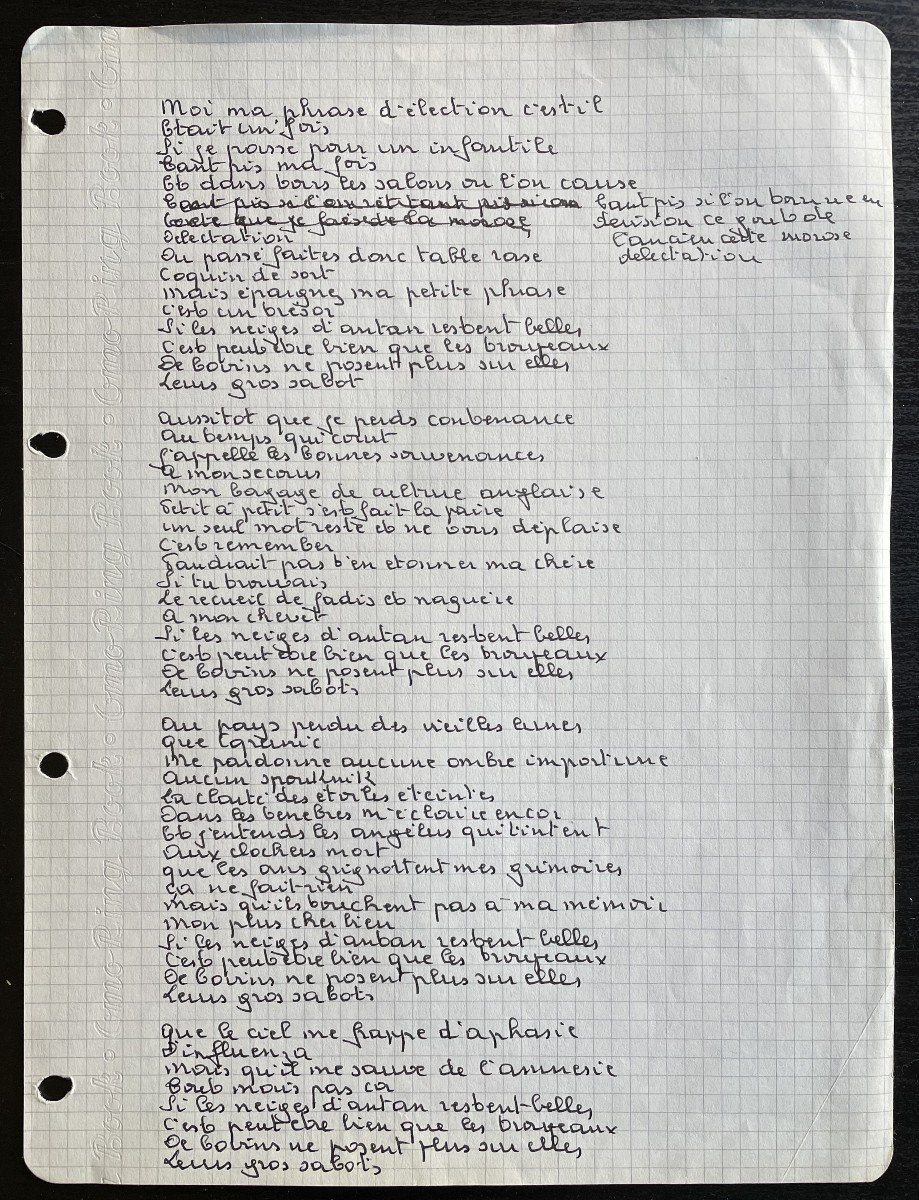 Moi ma phrase d'élection c'est il
Etait un' fois
Si je passe pour un infantile
tant pis ma fois
Et dans tous les salons ou l'on cause
tant pis si l'on tourne en
derision ce gout de
l'ancien cette morose
delectation
Delectation
Du passé faites donc table rase
Coquin de sort
mais épargnez ma petite phrase
c'est un tresor
Si les neiges d'antan restent belles
C'est peut être bien que les troupeaux
De bovins ne posent plus sur elles
Leurs gros sabot
aussitot que je perds contenance
au temps qui court
J'appelle les bonnes souvenances
a mon secours
Mon bagage de culture anglaise
Petit à petit s'est fait la paire
un seul mot reste et ne vous déplaise
C'est remember
faudrait pas t'en etonner ma chère
Si tu trouvais
Le recueil de jadis et naguère
a mon chevèt
Si les neiges d'antan restent belles
C'est peut être bien que les troupeaux
De bovins ne posent plus sur elles
Leurs gros sabots
Au pays perdu des vieilles lunes
que
me pardonne aucune ombre importune
aucun spoutnik
La clarté des etoiles éteintes
Dans les tenebres m'éclaire encor
Et j'entends les angélus qui tintent
Aux clochers mort
que les ans grignottent mes grimoires
ça ne fait rien
Mais qu'ils touchent pas à ma mémoire
mon plus cher bien
Si les neiges d'antan restent belles
C'est peut être bien que les troupeaux
De bovins ne posent plus sur elles
Leurs gros sabots
que le ciel me frappe d'aphasie
D'influenza
Mais qu'il me sauve de l'amnesie
Tout mais pas ca
Si les neiges d'antan restent belles
C'est peut etre bien que les troupeaux
De bovins ne posent plus sur elles
Leurs gros sabots